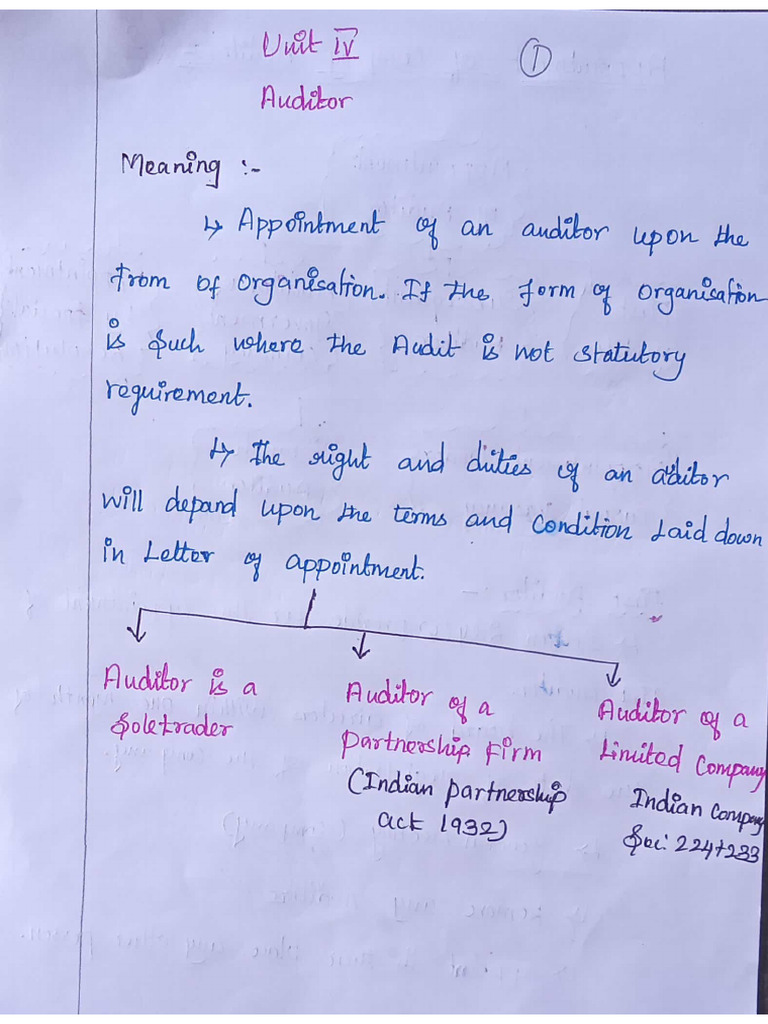 Unit IV
①
Auditor
Meaning :-
↳ Appointment of an auditor upon the
from of organisation. If the form of organisation
is such where the Audit is not statutory
requirement.
↳ The right and duties of an aditor
will depand upon the terms and condition Laid down
in Letter of appointment.
Auditor is a
Soletrader
Auditor of a
partnership firm
(Indian partnership
act 1932)
Auditor of a
Limited Company
Indian Company
Sec: 224+233